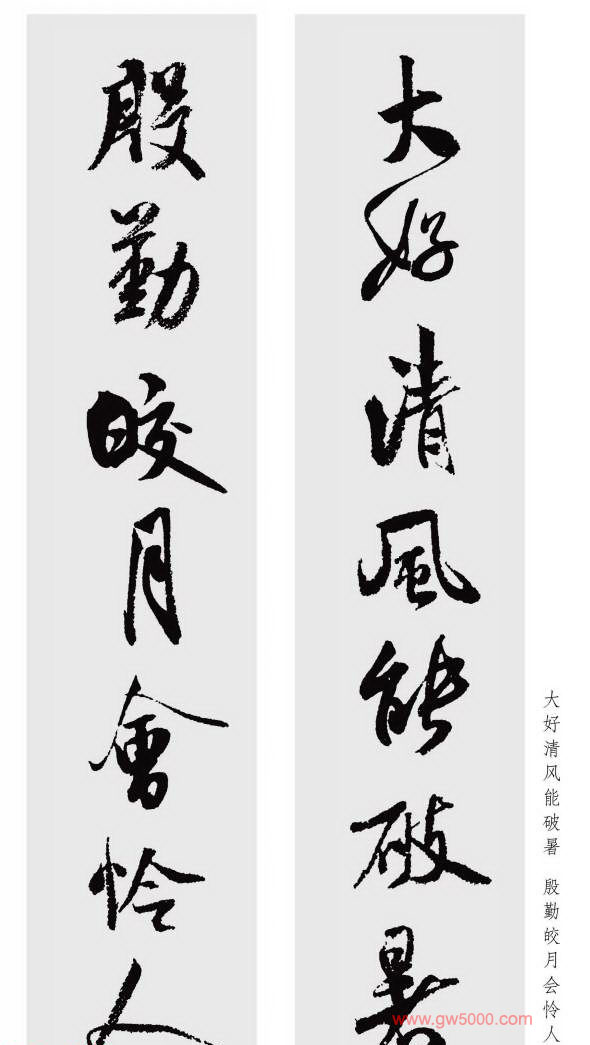 大好清風能破暑
殷勤皎月會怜人
大好清风能破暑 殷勤皎月会怜人
www.gw5000.com